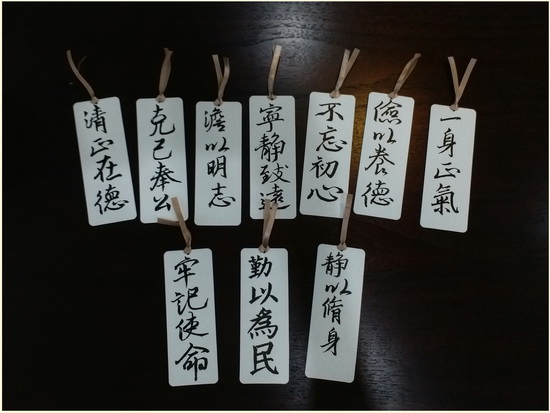 清正在德
克己奉公
澹以明志
寧静致遠
不忘初心
儉以養德
一身正氣
牢記使命
勤以為民
静以脩身